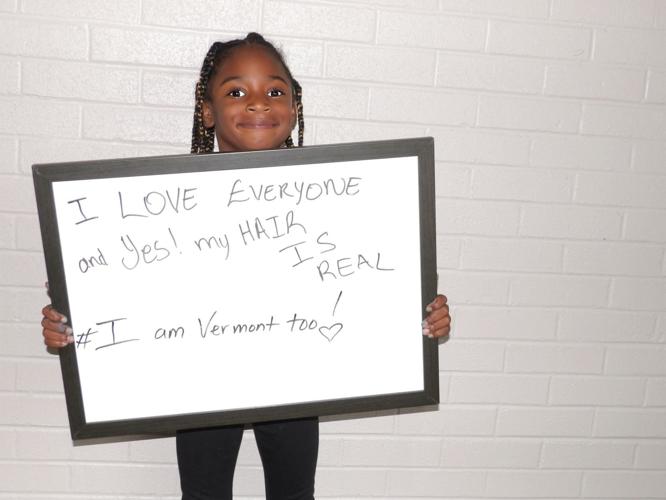 I LOVE EVERYONE
and Yes! my HAIR
IS
REAL
#I am Vermont too!♡